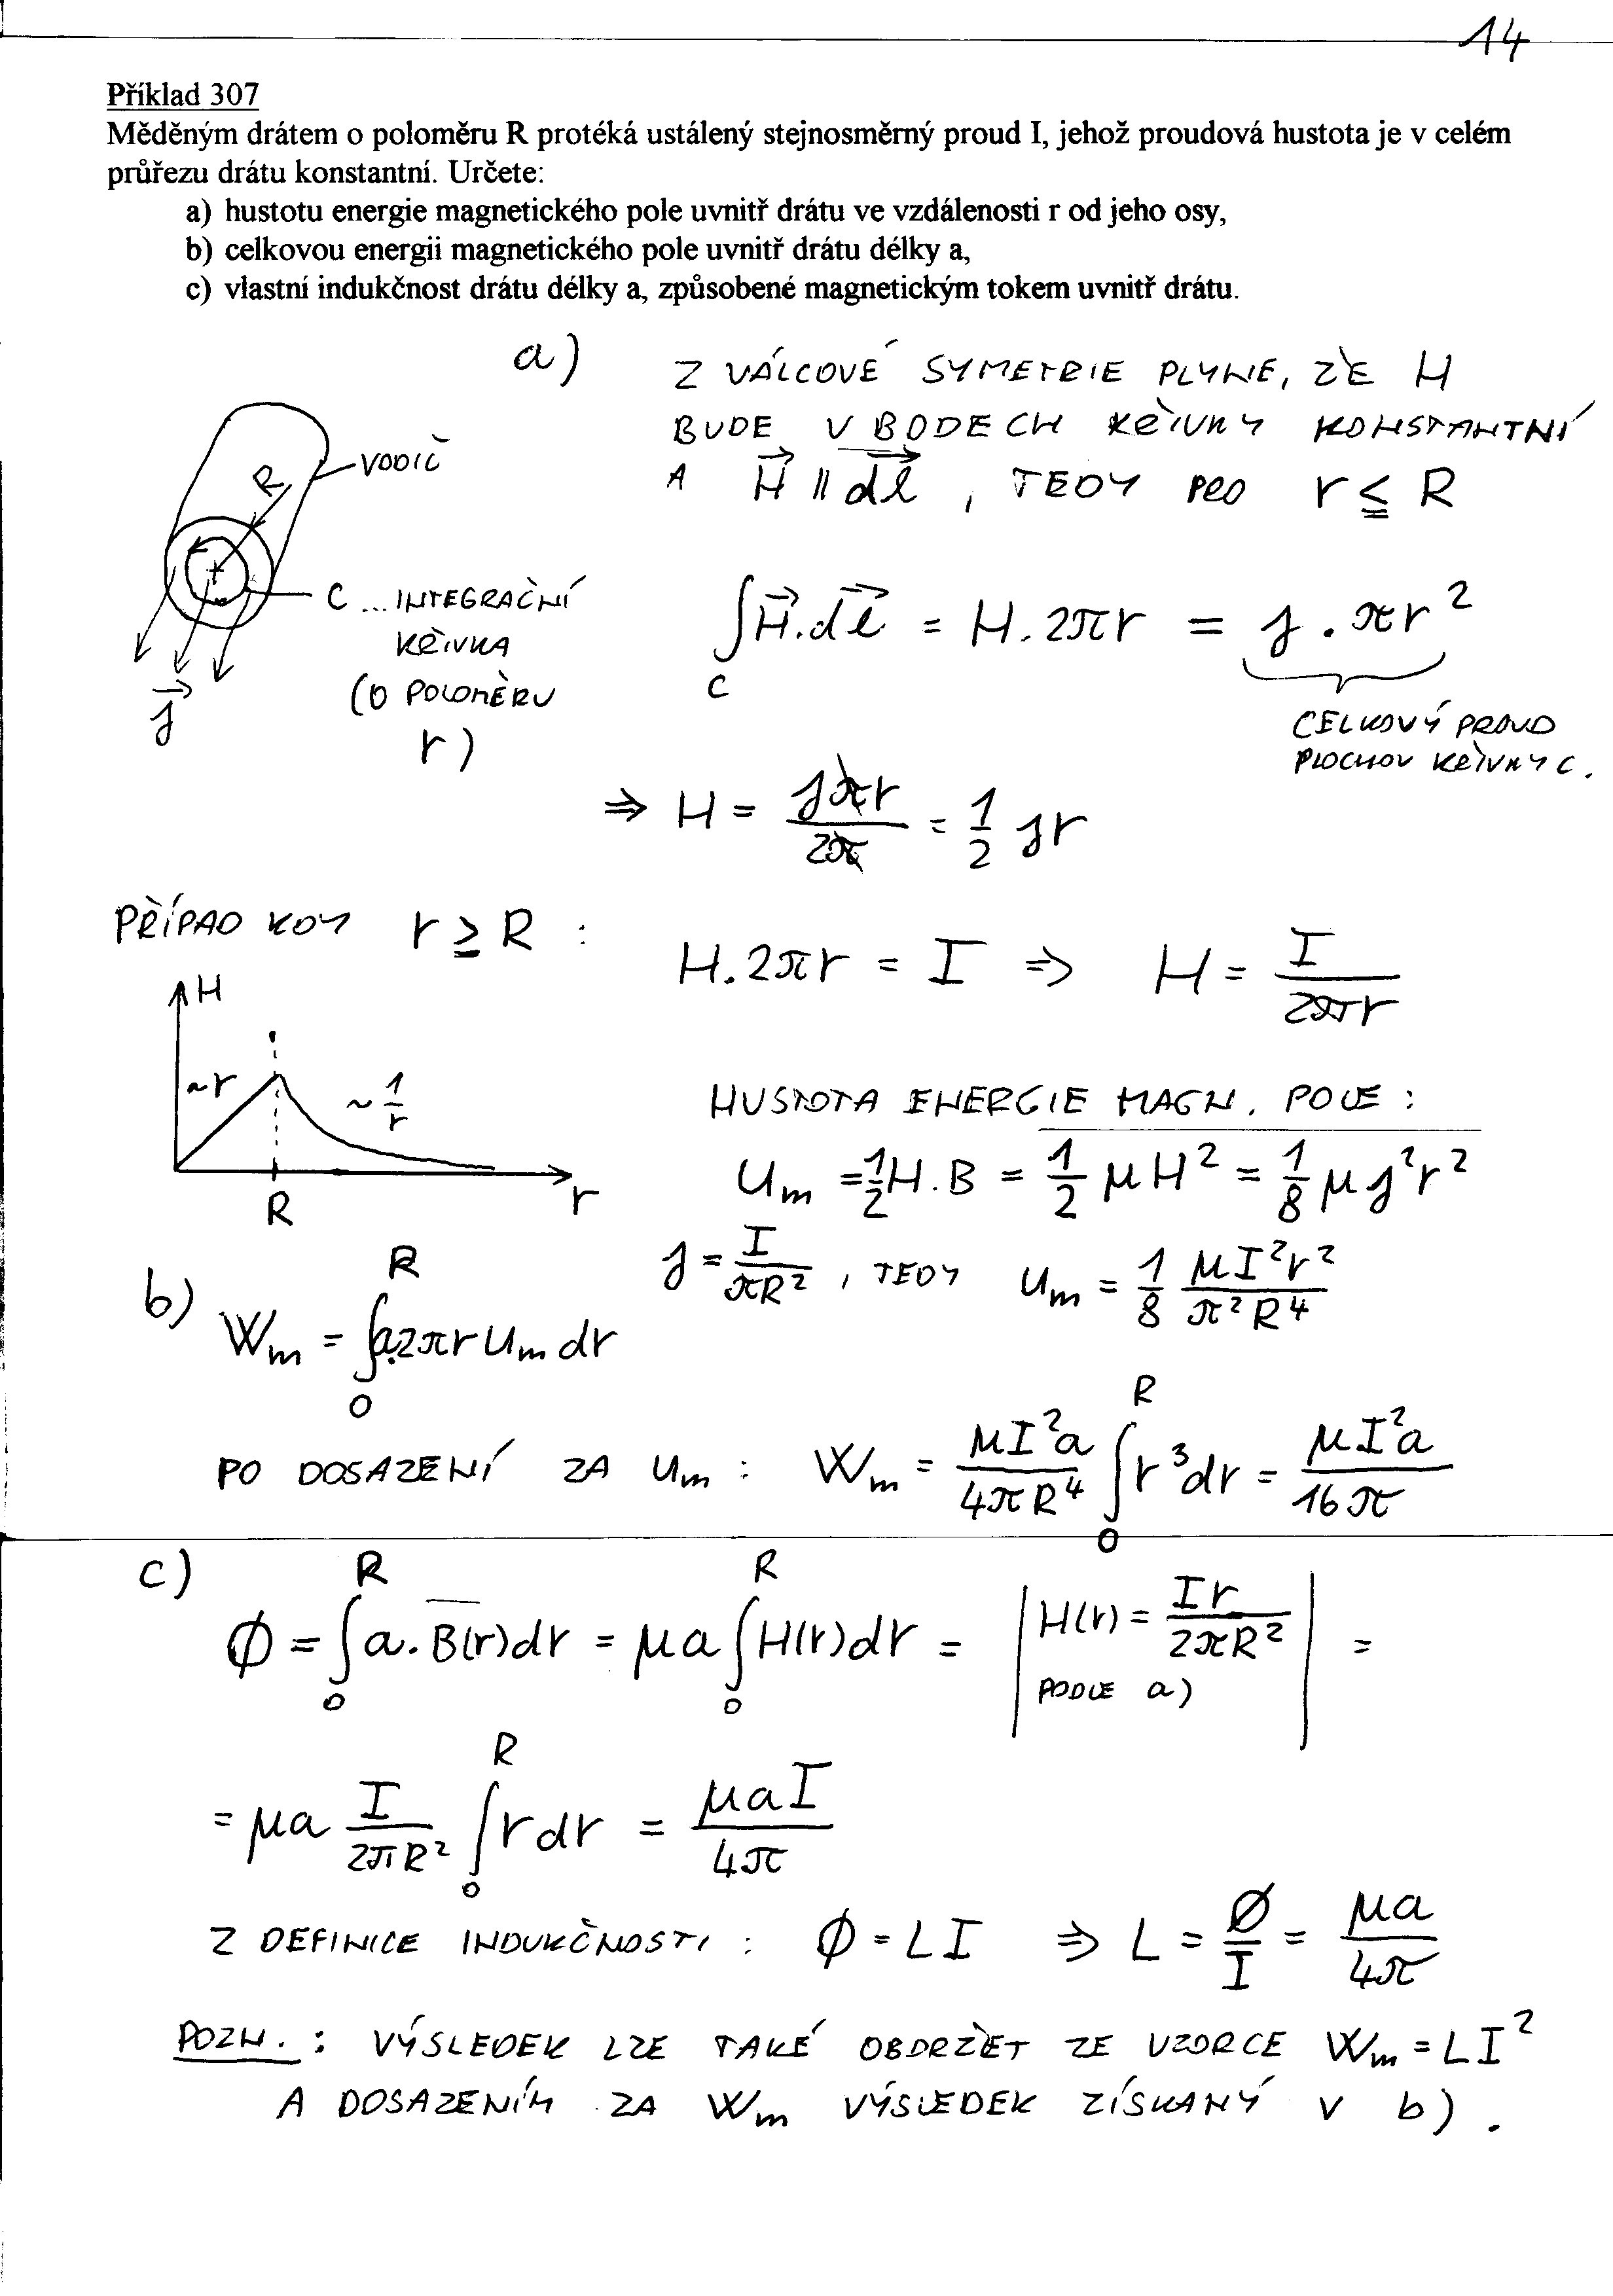 14
Příklad 307
Měděným drátem o poloměru R protéká ustálený stejnosměrný proud I, jehož proudová hustota je v celém
průřezu drátu konstantní. Určete:
a) hustotu energie magnetického pole uvnitř drátu ve vzdálenosti r od jeho osy,
b) celkovou energii magnetického pole uvnitř drátu délky a,
c) vlastní indukčnost drátu délky a, způsobené magnetickým tokem uvnitř drátu.
a) Z VÁLCOVÉ SYMETRIE PLYNE, ŽE H
BUDE V BODECH KŘIVKY KONSTANTNÍ
A H⃗ || dl⃗ , TEDY PRO r ≦ R
VODIČ
R
C ... INTEGRAČNÍ
KŘIVKA
(O POLOMĚRU
r)
j⃗
∫_C H⃗.dl⃗ = H.2πr = j.πr²
CELKOVÝ PROUD
PLOCHOU KŘIVKY C.
⇒ H = jπr/2π = 1/2 jr
PŘÍPAD KDY r ≥ R :
H.2πr = I ⇒ H = I/2πr
H
~r
~ 1/r
R
r
HUSTOTA ENERGIE MAGN. POLE :
u_m = 1/2 H.B = 1/2 μH² = 1/8 μj²r²
j = I/πR² , TEDY u_m = 1/8 μI²r²/π²R⁴
b) W_m = ∫_0^R a.2πr u_m dr
PO DOSAZENÍ ZA u_m : W_m = μI²a/4πR⁴ ∫_0^R r³dr = μI²a/16π
c) Ø = ∫_0^R a.B(r)dr = μa ∫_0^R H(r)dr = | H(r) = Ir/2πR² | =
PODLE a)
= μa I/2πR² ∫_0^R r dr = μaI/4π
Z DEFINICE INDUKČNOSTI : Ø = LI ⇒ L = Ø/I = μa/4π
POZN. : VÝSLEDEK LZE TAKÉ OBDRŽET ZE VZORCE W_m = LI²
A DOSAZENÍM ZA W_m VÝSLEDEK ZÍSKANÝ V b) .